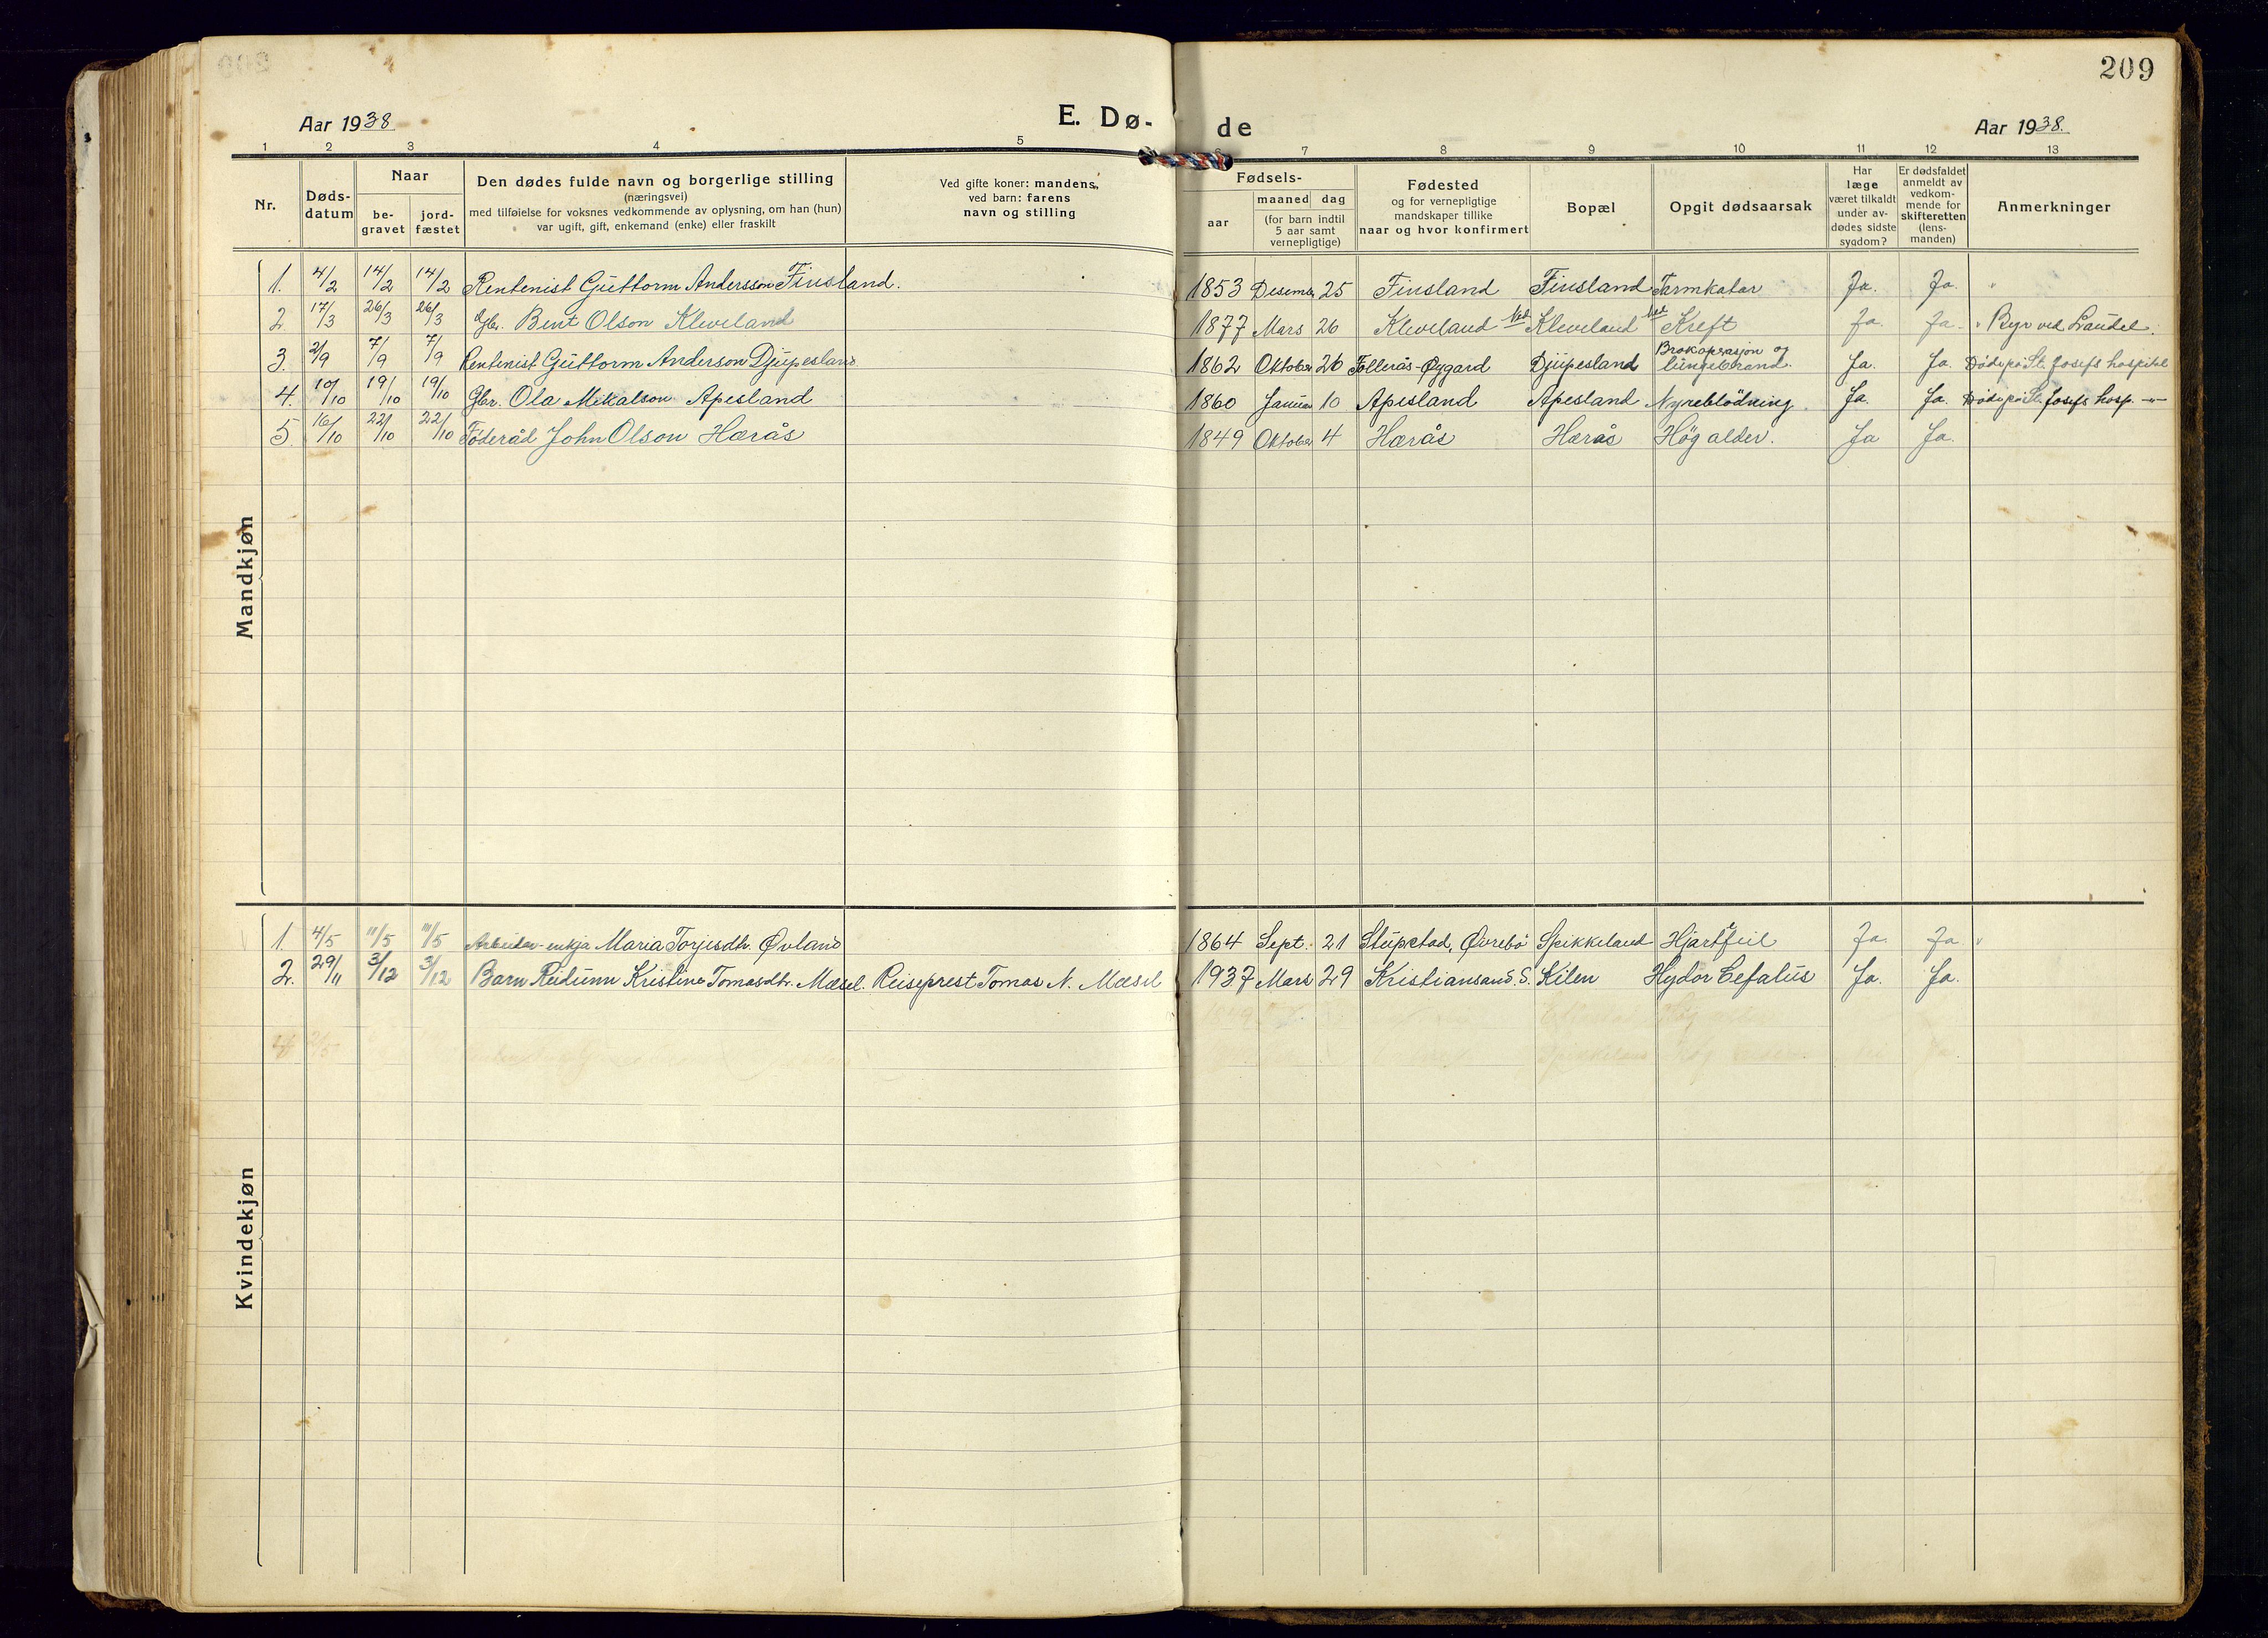 209
Aar 1938
E. Dø-
de
Aar 1938.
1 2 3 4 5 6 7 8 9 10 11 12 13
Nr.
Døds-
datum
Naar
be-
gravet
jord-
fæstet
Den dødes fulde navn og borgerlige stilling
(næringsvei)
med tilføielse for voksnes vedkommende av oplysning, om han (hun)
var ugift, gift, enkemand (enke) eller fraskilt
Ved gifte koner: mandens,
ved barn: farens
navn og stilling
Fødsels-
aar
maaned dag
(for barn indtil
5 aar samt
vernepligtige)
Fødested
og for vernepligtige
mandskaper tillike
naar og hvor konfirmert
Bopæl
Opgit dødsaarsak
Har
læge
været tilkaldt
under av-
dødes sidste
sygdom?
Er dødsfaldet
anmeldt av
vedkom-
mende for
skifteretten
(lens-
manden)
Anmerkninger
Mandkjøn
1. 4/2 14/2 14/2 Rentenist Guttorm Andersson Finsland. 1853 Desemb. 25 Finsland Finsland Tarmkatar Ja. Ja.
2. 17/3 26/3 26/3 Gbr. Bent Olson Kleveland 1877 Mars 26 Kleveland Ned Kleveland Ned Kreft Ja. Ja. Byr ved Laudel.
3. 2/9 7/9 7/9 Rentenist Guttorm Anderson Djupesland 1862 Oktober 26 Follerås-Øygard Djupesland Brokoperasjon og lungebrand. Ja. Ja. Døde på St. Josefs hospital
4. 10/10 19/10 19/10 Gbr. Ola Mikalson Apesland 1860 Januar 10 Apesland Apesland Nyreblödning. Ja. Ja. Døde på St. Josefs hosp. -"-
5. 16/10 22/10 22/10 Föderåd John Olson Hærås 1849 Oktober 4 Hærås Hærås Høg alder. Ja Ja.
Kvindekjøn
1. 4/5 11/5 11/5 Arbeider-enkja Maria Torjesdtr. Øvland 1864 Sept. 21 Stupstad, Øvrebø Spikkeland Hjartfeil Ja. Ja
2. 29/11 3/12 3/12 Barn Reidunn Kristine Tomasdtr. Mæsel. Reiseprest Tomas N. Mæsel 1937 Mars 29 Kristiansand. S. Kilen Hydor Cefalus Ja. Ja.